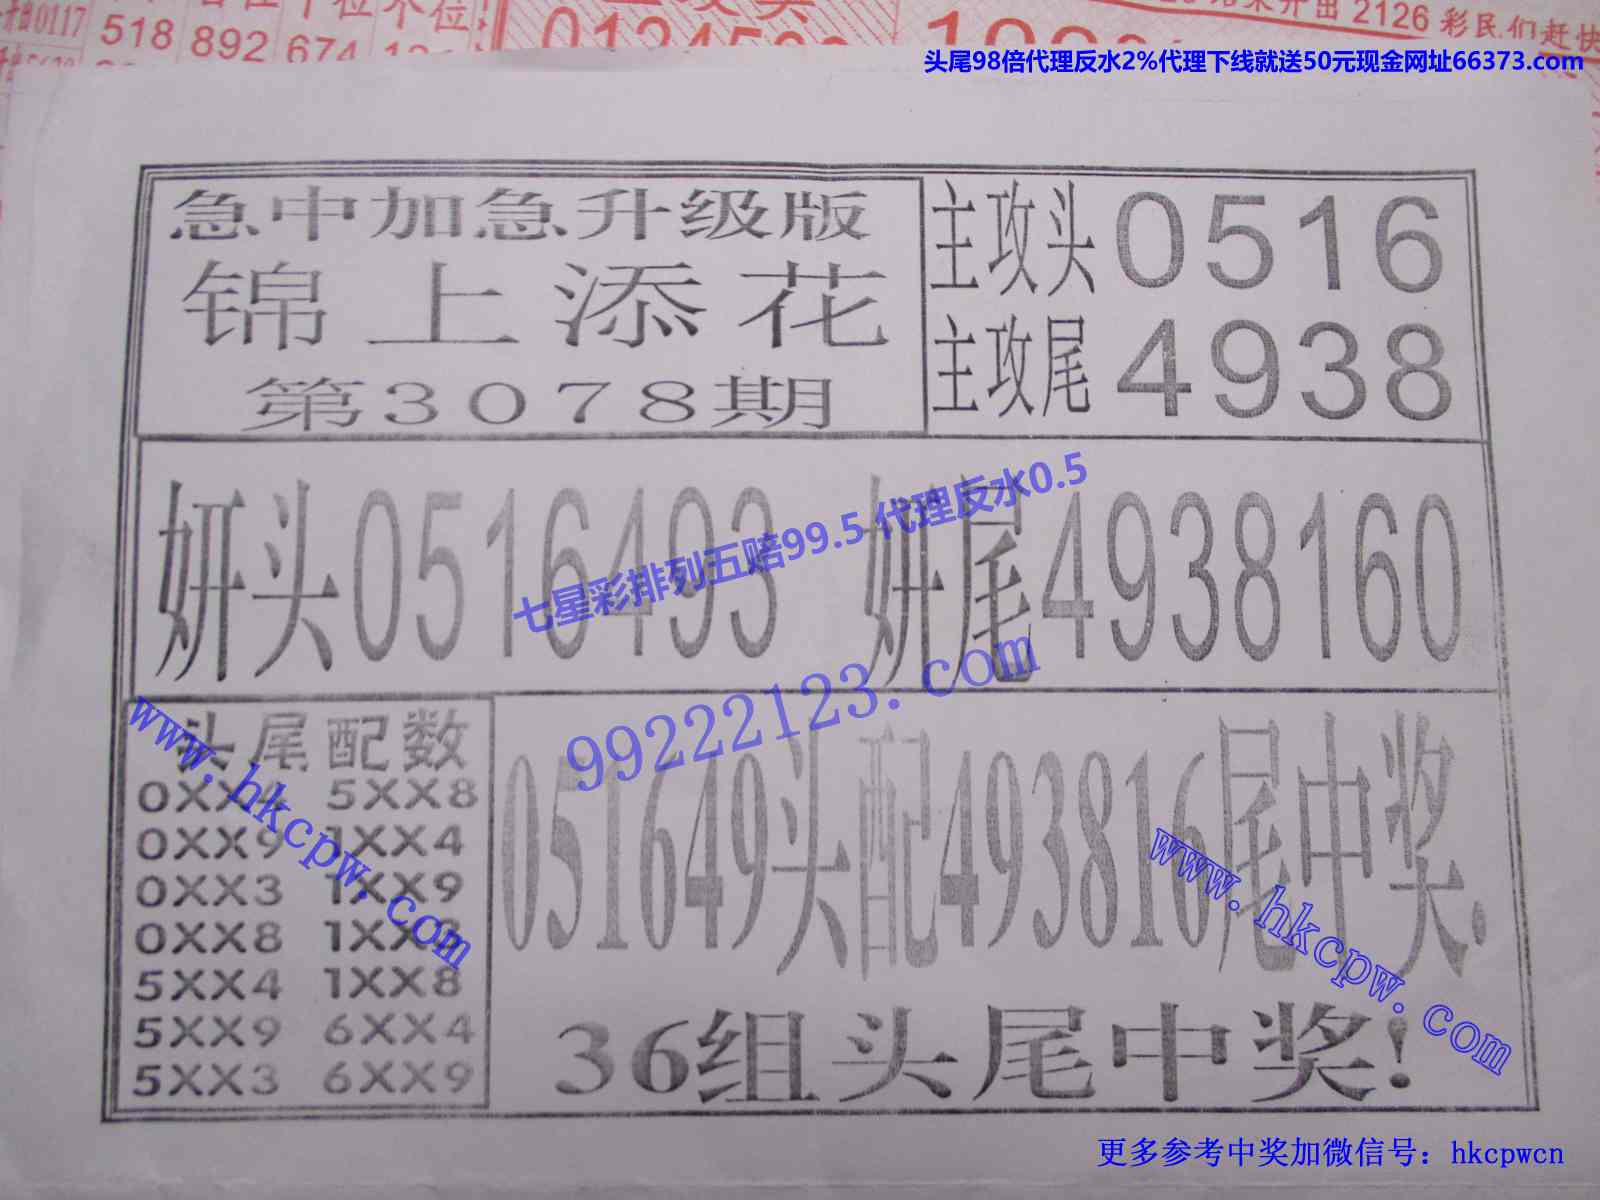 518 892 674
头尾98倍代理反水2%代理下线就送50元现金网址66373.com
急中加急升级版
锦上添花
第3078期
主攻头0516
主攻尾4938
妍头0516493 妍尾4938160
七星彩排列五赔99.5 代理反水0.5
99222123.com
头尾配数
0XX4 5XX8
0XX9 1XX4
0XX3 1XX9
0XX8 1XX3
5XX4 1XX8
5XX9 6XX4
5XX3 6XX9
www.hkcpw.com
051649头配493816尾中奖.
www.hkcpw.com
36组头尾中奖!
更多参考中奖加微信号：hkcpwcn